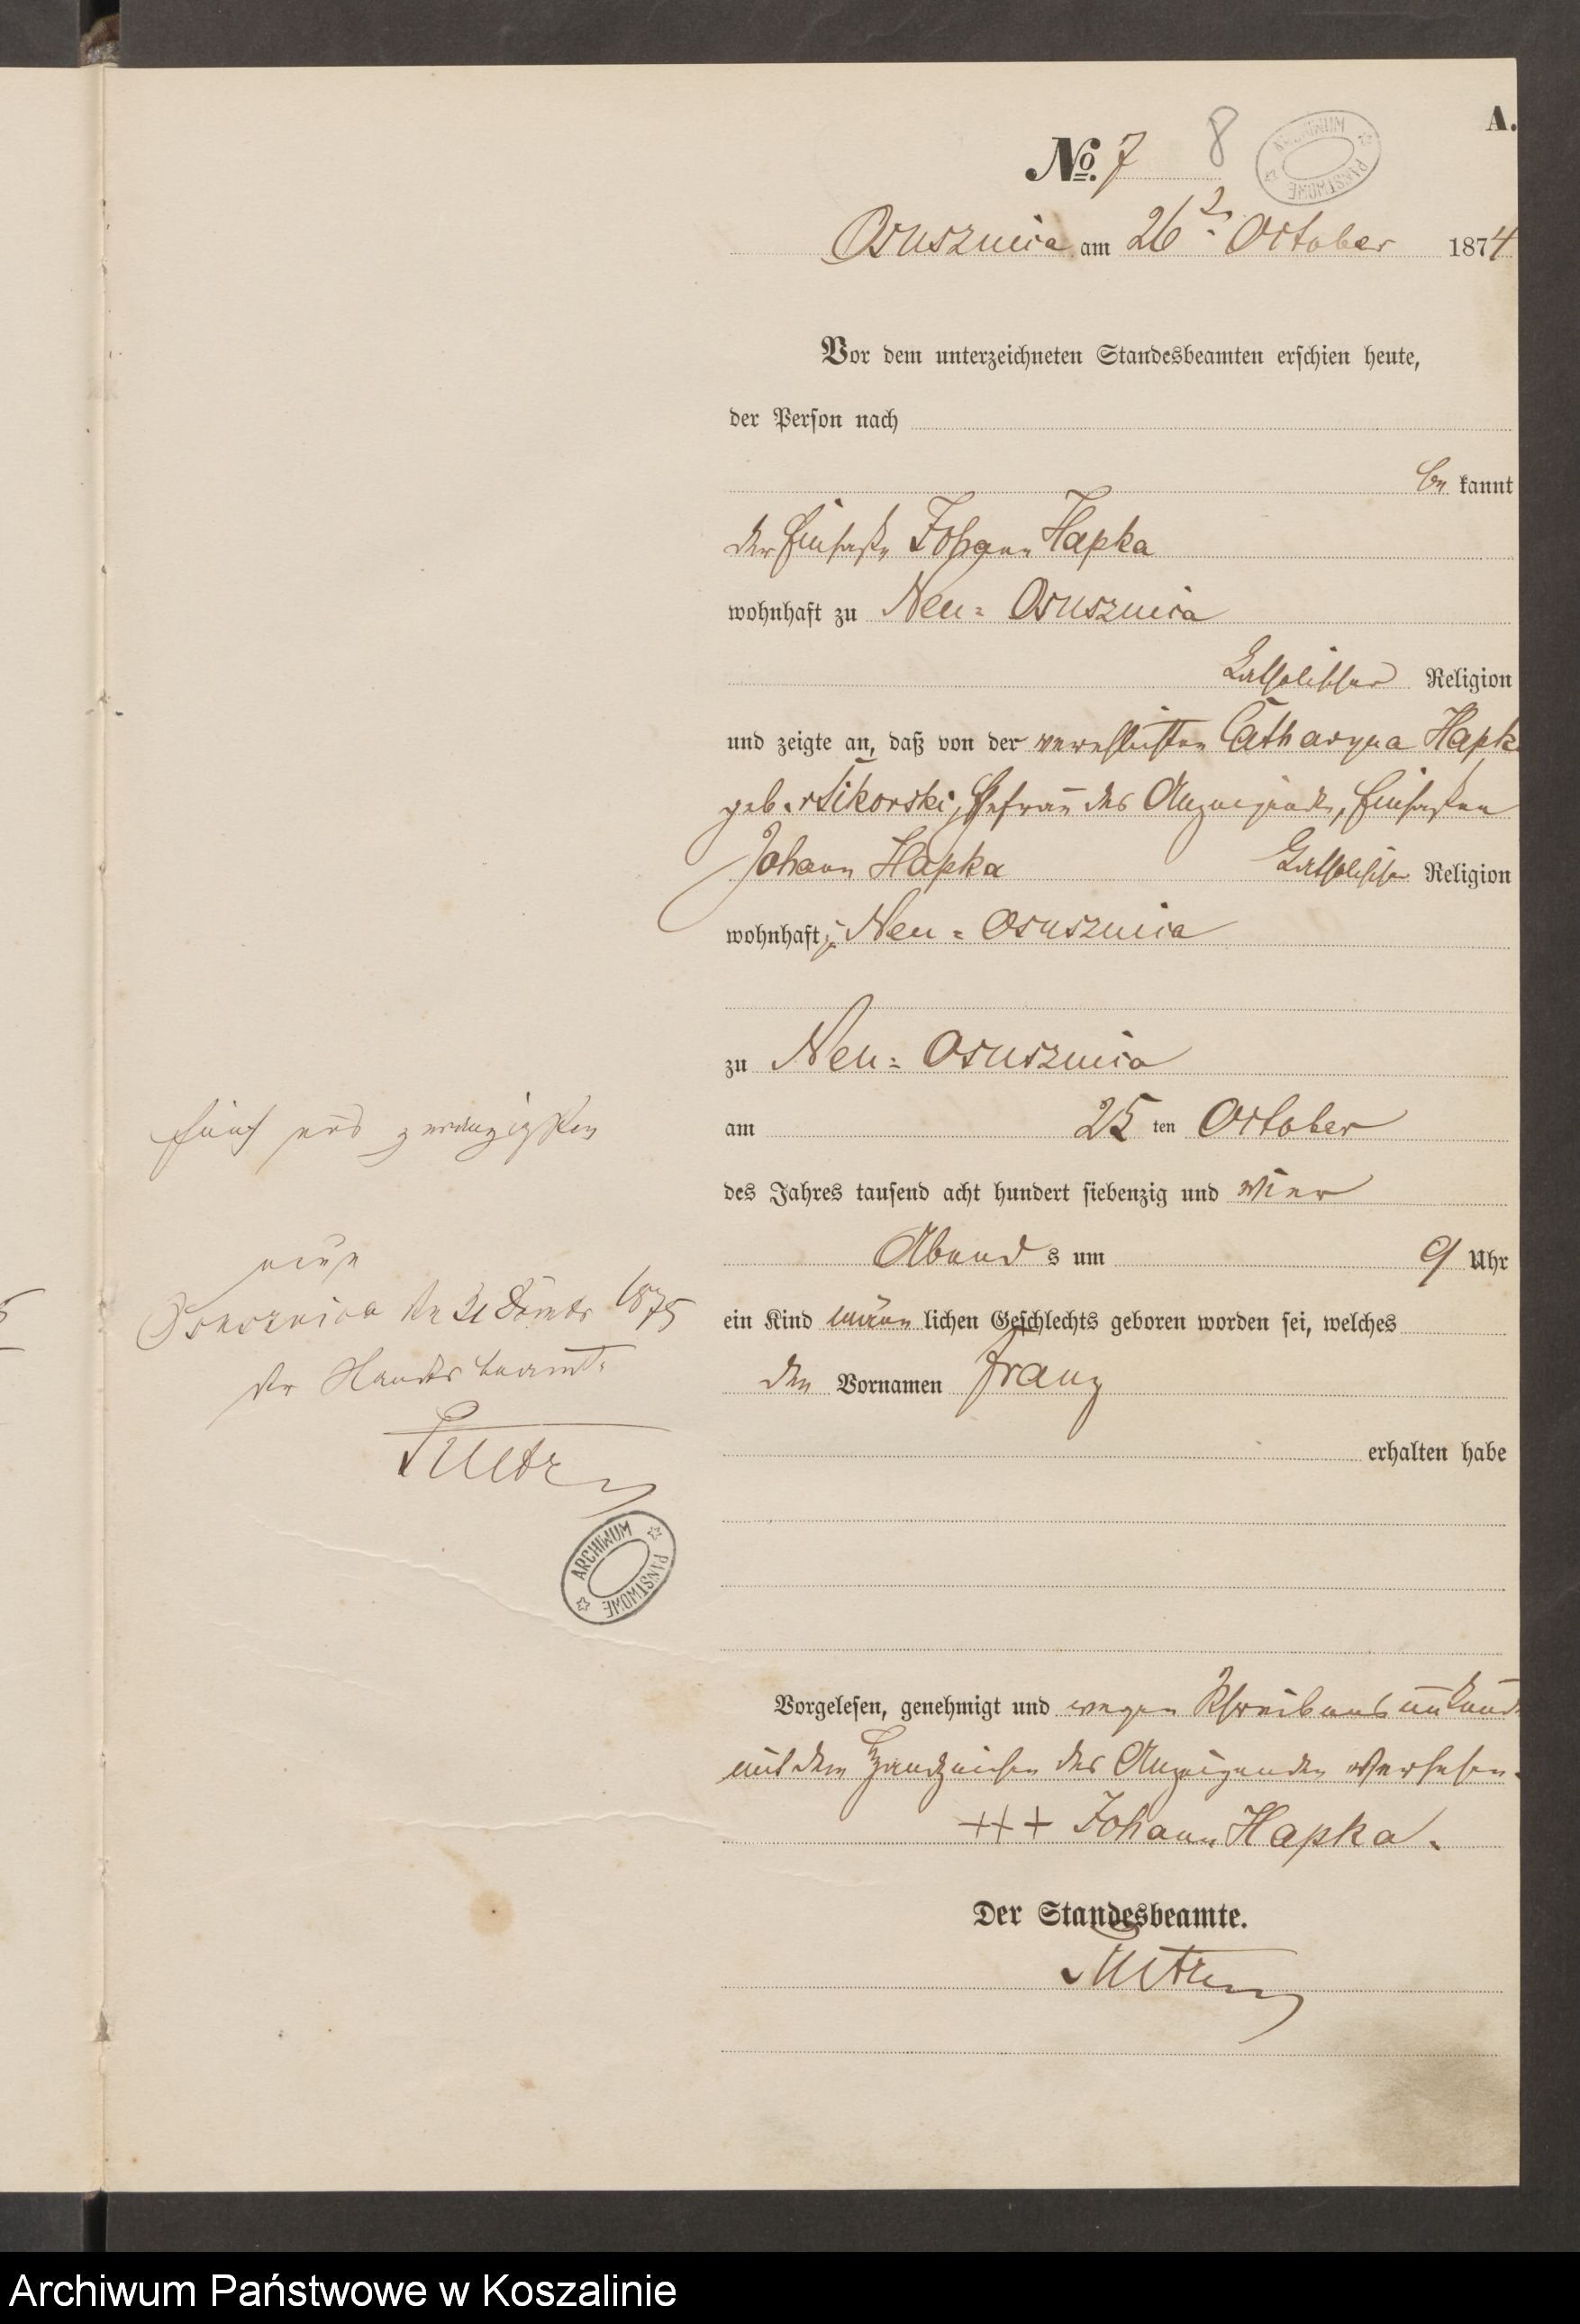 A.
No. 7
8
ARCHIWUM PAŃSTWOWE
Osusznica am 26 October 1874
Vor dem unterzeichneten Standesbeamten erschien heute,
der Person nach
be kannt
der Einsaße Johann Hapka
wohnhaft zu Neu-Osusznica
katholischer Religion
und zeigte an, daß von der verehelichten Catharyna Hapk
geb. Sikorski, Ehefrau des Anzeigenden, Einsaßen
Johann Hapka katholischer Religion
wohnhaft zu Neu-Osusznica
zu Neu-Osusznica
am 25 ten October
des Jahres tausend acht hundert siebenzig und vier
Abend s um 9 Uhr
ein Kind männ lichen Geschlechts geboren worden sei, welches
den Vornamen Franz
erhalten habe
Vorgelesen, genehmigt und wegen Schreibens unkund
mit dem Handzeichen des Anzeigenden versehen.
+++ Johann Hapka.
Der Standesbeamte.
fünf und zwanzigsten
neun
Osusznica den 1875
der Standesbeamte
ARCHIWUM PAŃSTWOWE
Archiwum Państwowe w Koszalinie